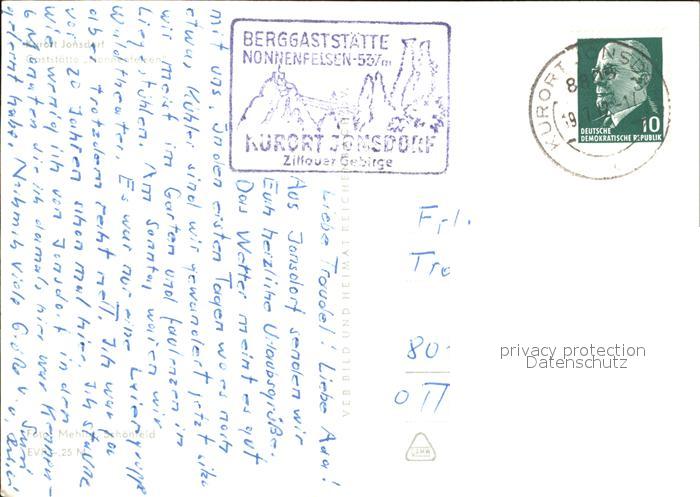 BERGGASTSTÄTTE
NONNENFELSEN-537m
KURORT JONSDORF
Zittauer Gebirge
KURORT JONSDORF
DEUTSCHE
DEMOKRATISCHE REPUBLIK
10
Kurort Jonsdorf
Gaststätte Nonnenfelsen
Liebe Traudel! Liebe Ada!
Aus Jonsdorf senden wir
Euch herzliche Urlaubsgrüße.
Das Wetter meint es gut
mit uns. In den ersten Tagen wo es noch
etwas kühler sind wir gewandert jetzt
wir meist im Garten und faulenzen in
Liegestühlen. Am Sonntag waren wir
Waldtheater. Es war nur eine Laiengruppe
aber trotzdem recht nett. Ich war ja
vor 20 Jahren schon mal hier. Ich staune
wie wenig ich von Jonsdorf in den
6 Monaten die ich damals hier war kennen-
gelernt habe. Nochmals viele Grüße
VEB BILD UND HEIMAT REICHENBACH
Frl.
Tra
80
privacy protection
Datenschutz